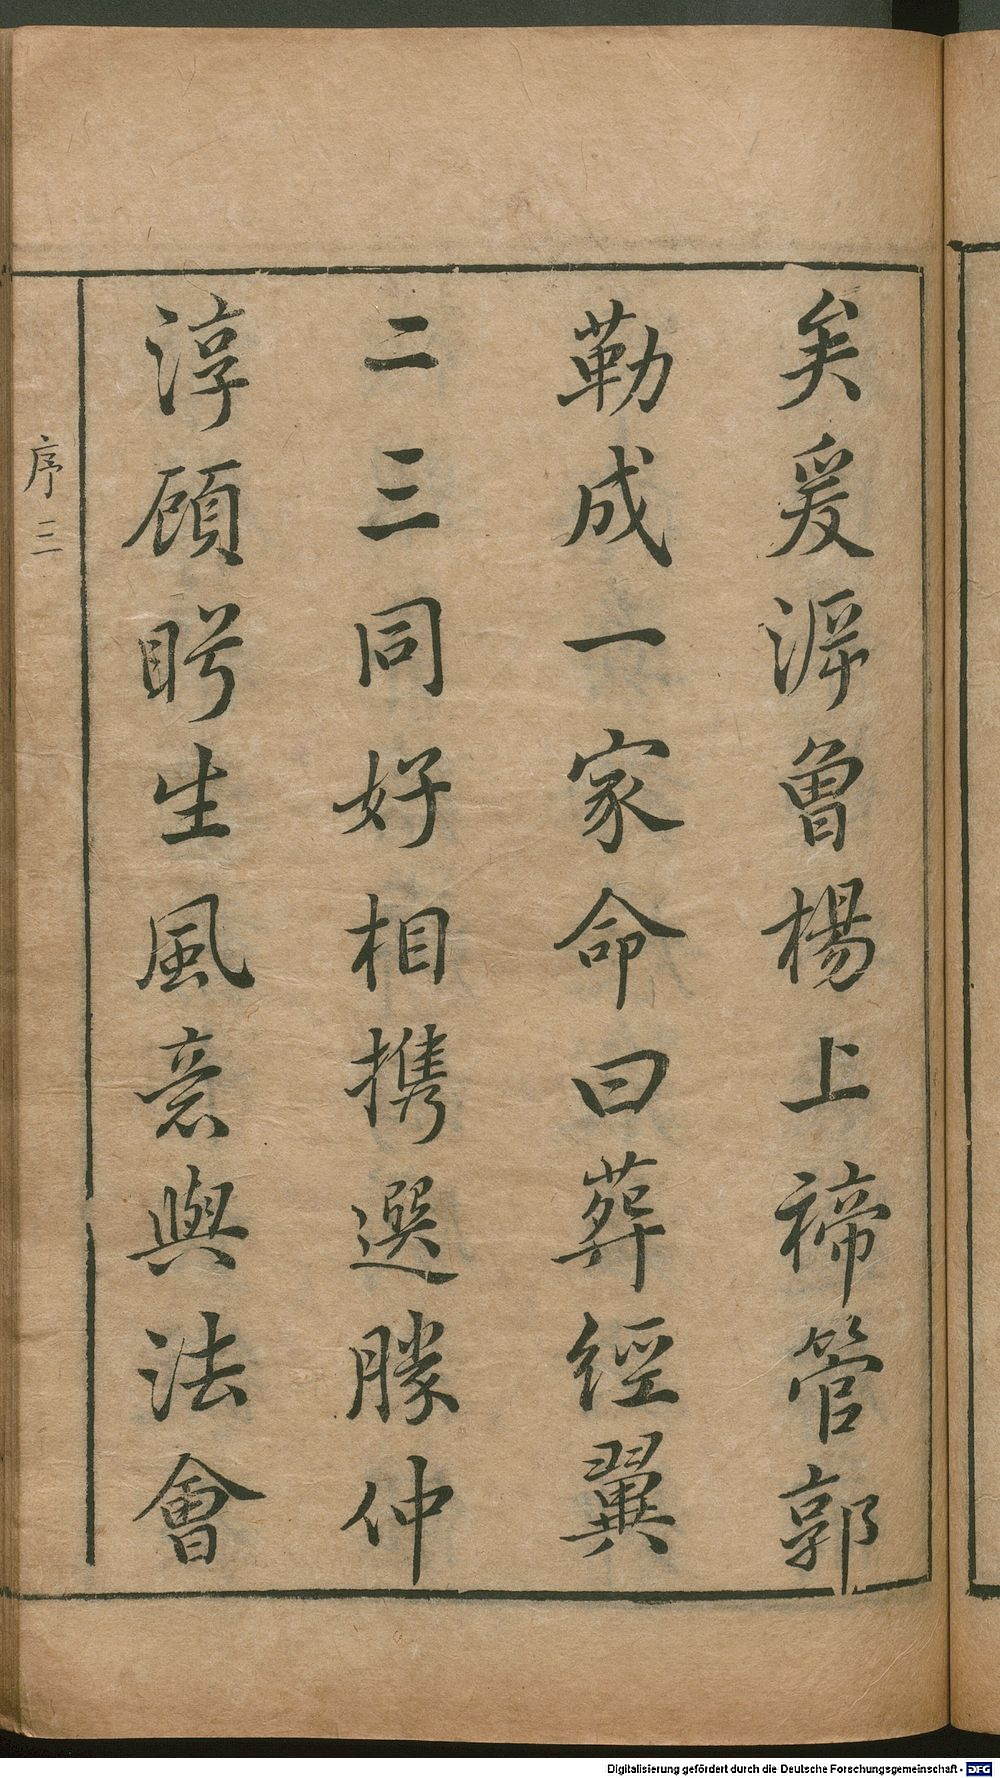 矣爰泝曽楊上禘管郭
勒成一家命曰葬經翼
二三同好相携選勝仲
淳顧眄生風意與法會
序三
Digitalisierung gefördert durch die Deutsche Forschungsgemeinschaft - DFG